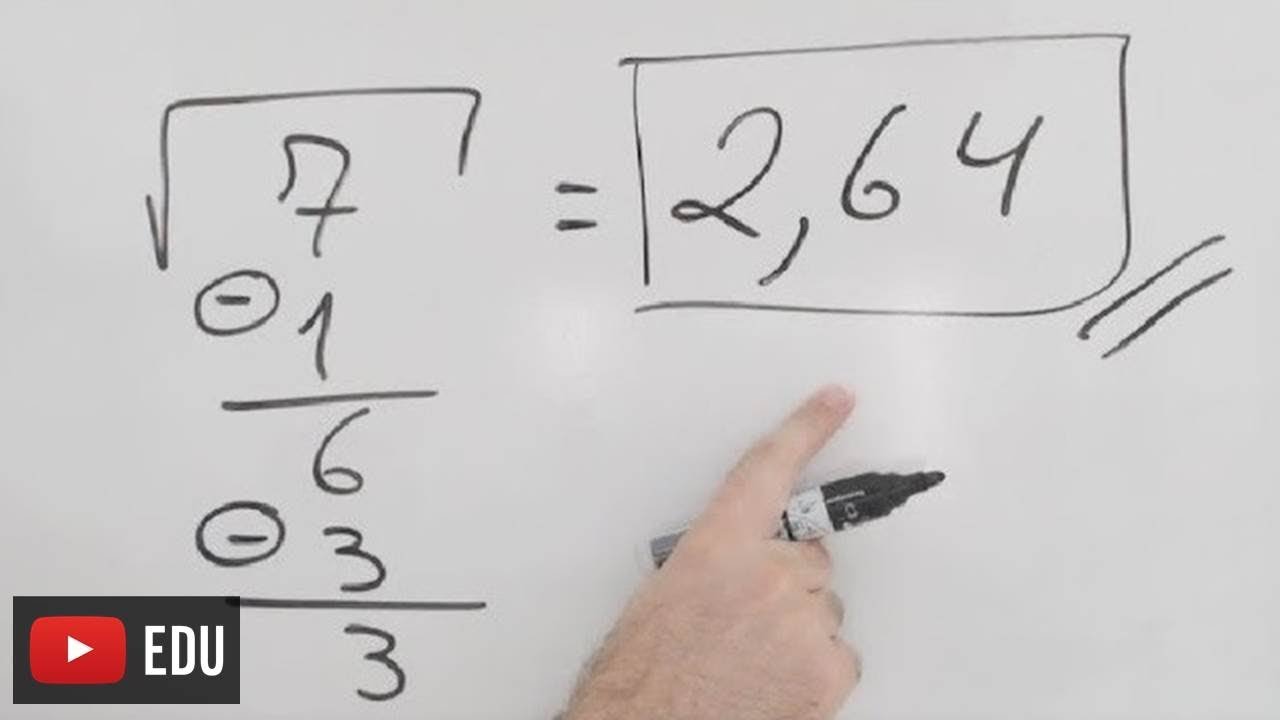 √7 = 2,64
- 1
6
- 3
3
EDU